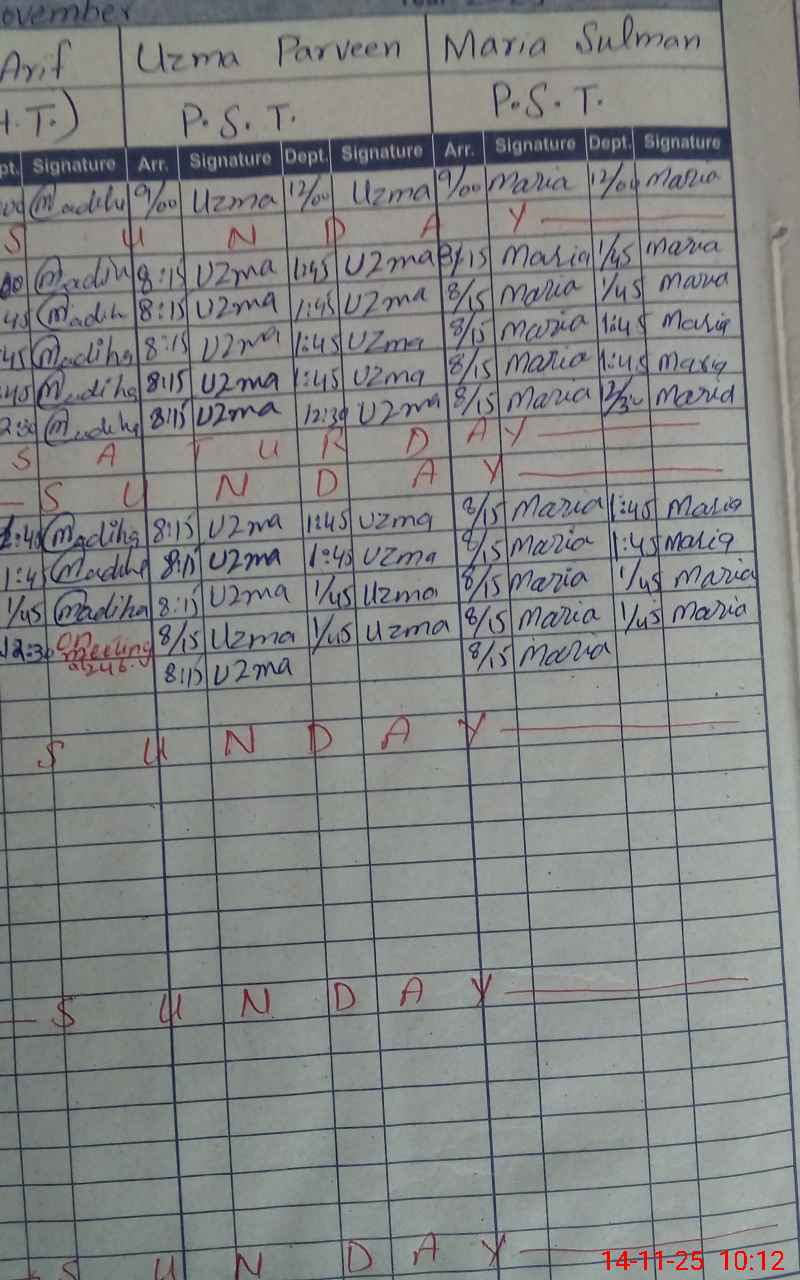 ovember
Arif Uzma Parveen Maria Sulman
H.T.) P.S.T. P.S.T.
pt. Signature Arr. Signature Dept. Signature Arr. Signature Dept. Signature
Madiha 9/00 Uzma 12/00 Uzma 9/00 Maria 12/00 Maria
S U N D A Y
00 Madiha 8:15 Uzma 1:45 Uzma 8/15 Maria 1/45 Maria
45 Madiha 8:15 Uzma 1:45 Uzma 8/15 Maria 1/45 Maria
45 Madiha 8:15 Uzma 1:45 Uzma 8/15 Maria 1:45 Maria
:45 Madiha 8:15 Uzma 1:45 Uzma 8/15 Maria 1:45 Maria
2:30 Madiha 8:15 Uzma 12:30 Uzma 8/15 Maria 12/30 Maria
S A T U R D A Y
S U N D A Y
1:45 Madiha 8:15 Uzma 1:45 Uzma 8/15 Maria 1:45 Maria
1:45 Madiha 8:15 Uzma 1:45 Uzma 8/15 Maria 1:45 Maria
1/45 Madiha 8:15 Uzma 1/45 Uzma 8/15 Maria 1/45 Maria
12:30 on meeting 8/15 Uzma 1/45 Uzma 8/15 Maria 1/45 Maria
8:15 Uzma 8/15 Maria
S U N D A Y
S U N D A Y
S U N D A Y
14-11-25 10:12